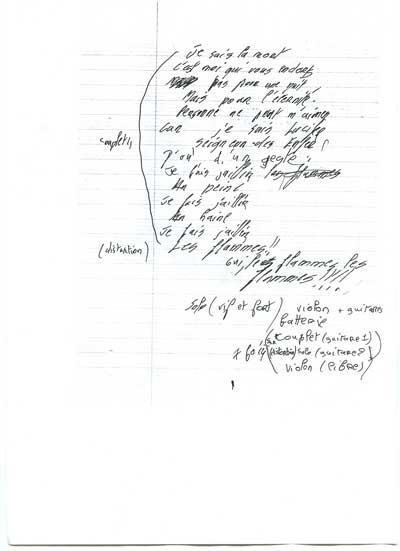 Je suis la mort
C'est moi qui vous endors
pas pour une nuit,
Mais pour l'éternité.
Personne ne peut m'aimer
Car je suis Lucifer
Seigneur des Enfers!
d'un geste:
couplet
Je fais jaillir les flammes
Ma peine
Je fais jaillir
Ma haine
Je fais jaillir
(distortion) Les flammes!!
oui, les flammes, les
flammes !!!!
Solo (vif et fort) violon + guitares
batterie
couplet (guitare 1)
solo (guitare 2)
violon (libre)